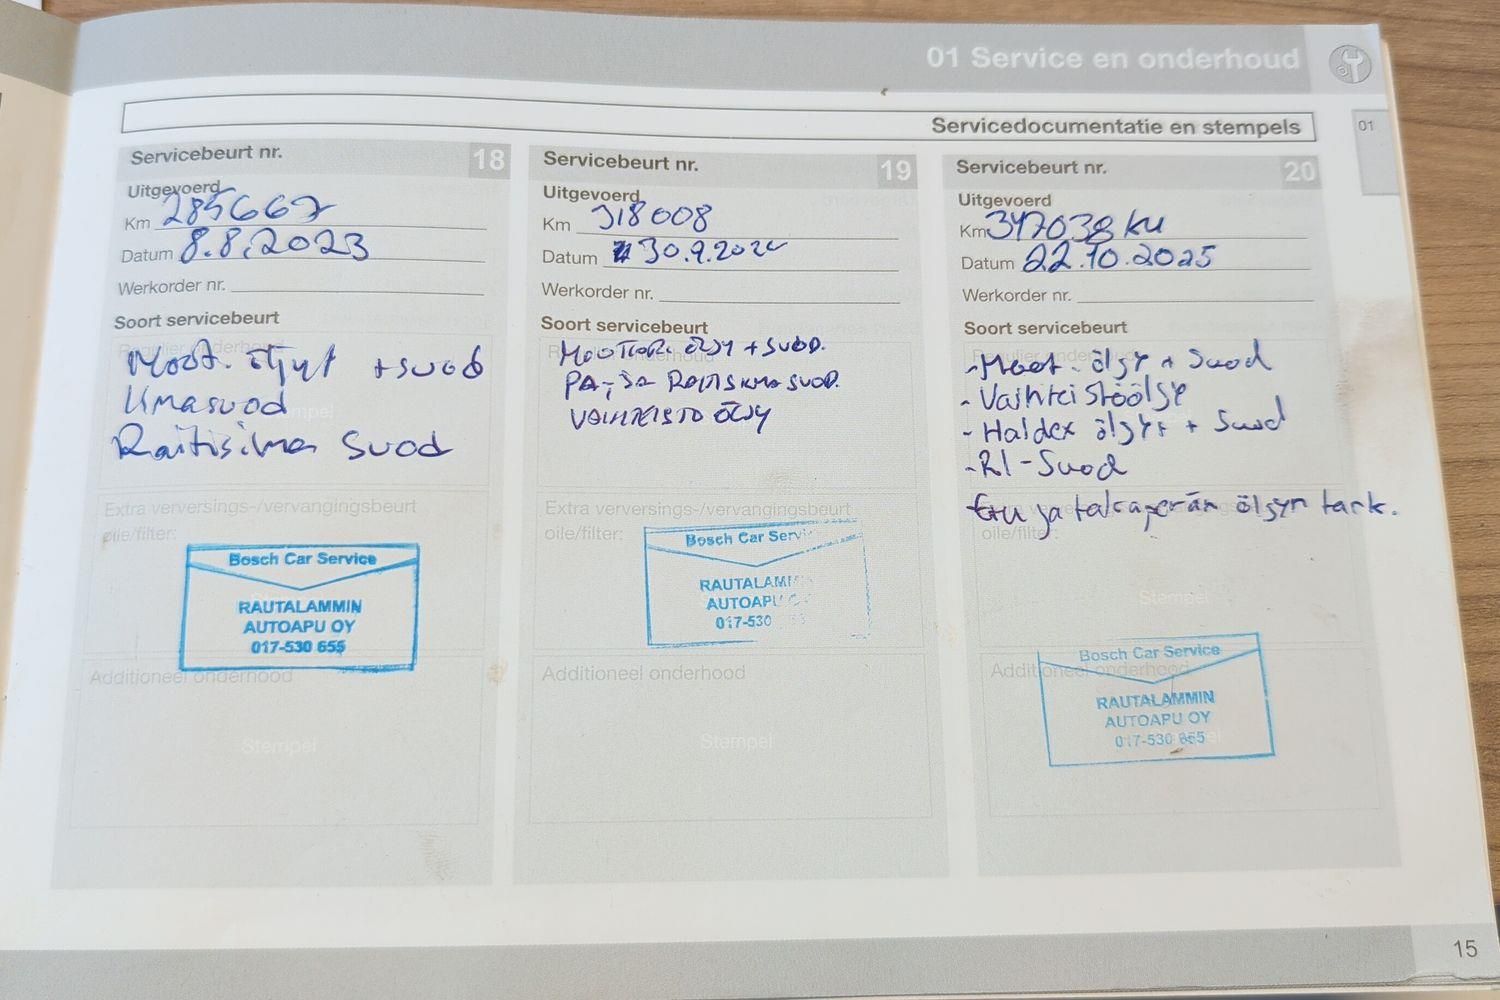 01 Service en onderhoud
Servicedocumentatie en stempels
01
Servicebeurt nr. 18
Uitgevoerd
Km 285667
Datum 8.8.2023
Werkorder nr.
Soort servicebeurt
Moot. öljyt + suod
Ilmasuod
Raitisilma suod
Extra verversings-/vervangingsbeurt
olie/filter:
Bosch Car Service
RAUTALAMMIN
AUTOAPU OY
017-530 655
Additioneel onderhoud
Stempel
Servicebeurt nr. 19
Uitgevoerd
Km 318008
Datum 30.9.2024
Werkorder nr.
Soort servicebeurt
MOOTTORI ÖLJY + SUOD.
PA, JA RAITISILMA SUOD.
VAIHTEISTO ÖLJY
Extra verversings-/vervangingsbeurt
olie/filter:
Bosch Car Servi
RAUTALAMMIN
AUTOAPU O
017-530
Additioneel onderhoud
Stempel
Servicebeurt nr. 20
Uitgevoerd
Km 347038 km
Datum 22.10.2025
Werkorder nr.
Soort servicebeurt
- Moot. öljy + Suod
- Vaihteistöölje
- Haldex öljyt + Suod
- RI-Suod
Etu ja takaperän öljyn tark.
olie/filter:
Stempel
Bosch Car Service
Additioneel onderhoud
RAUTALAMMIN
AUTOAPU OY
017-530 655
15